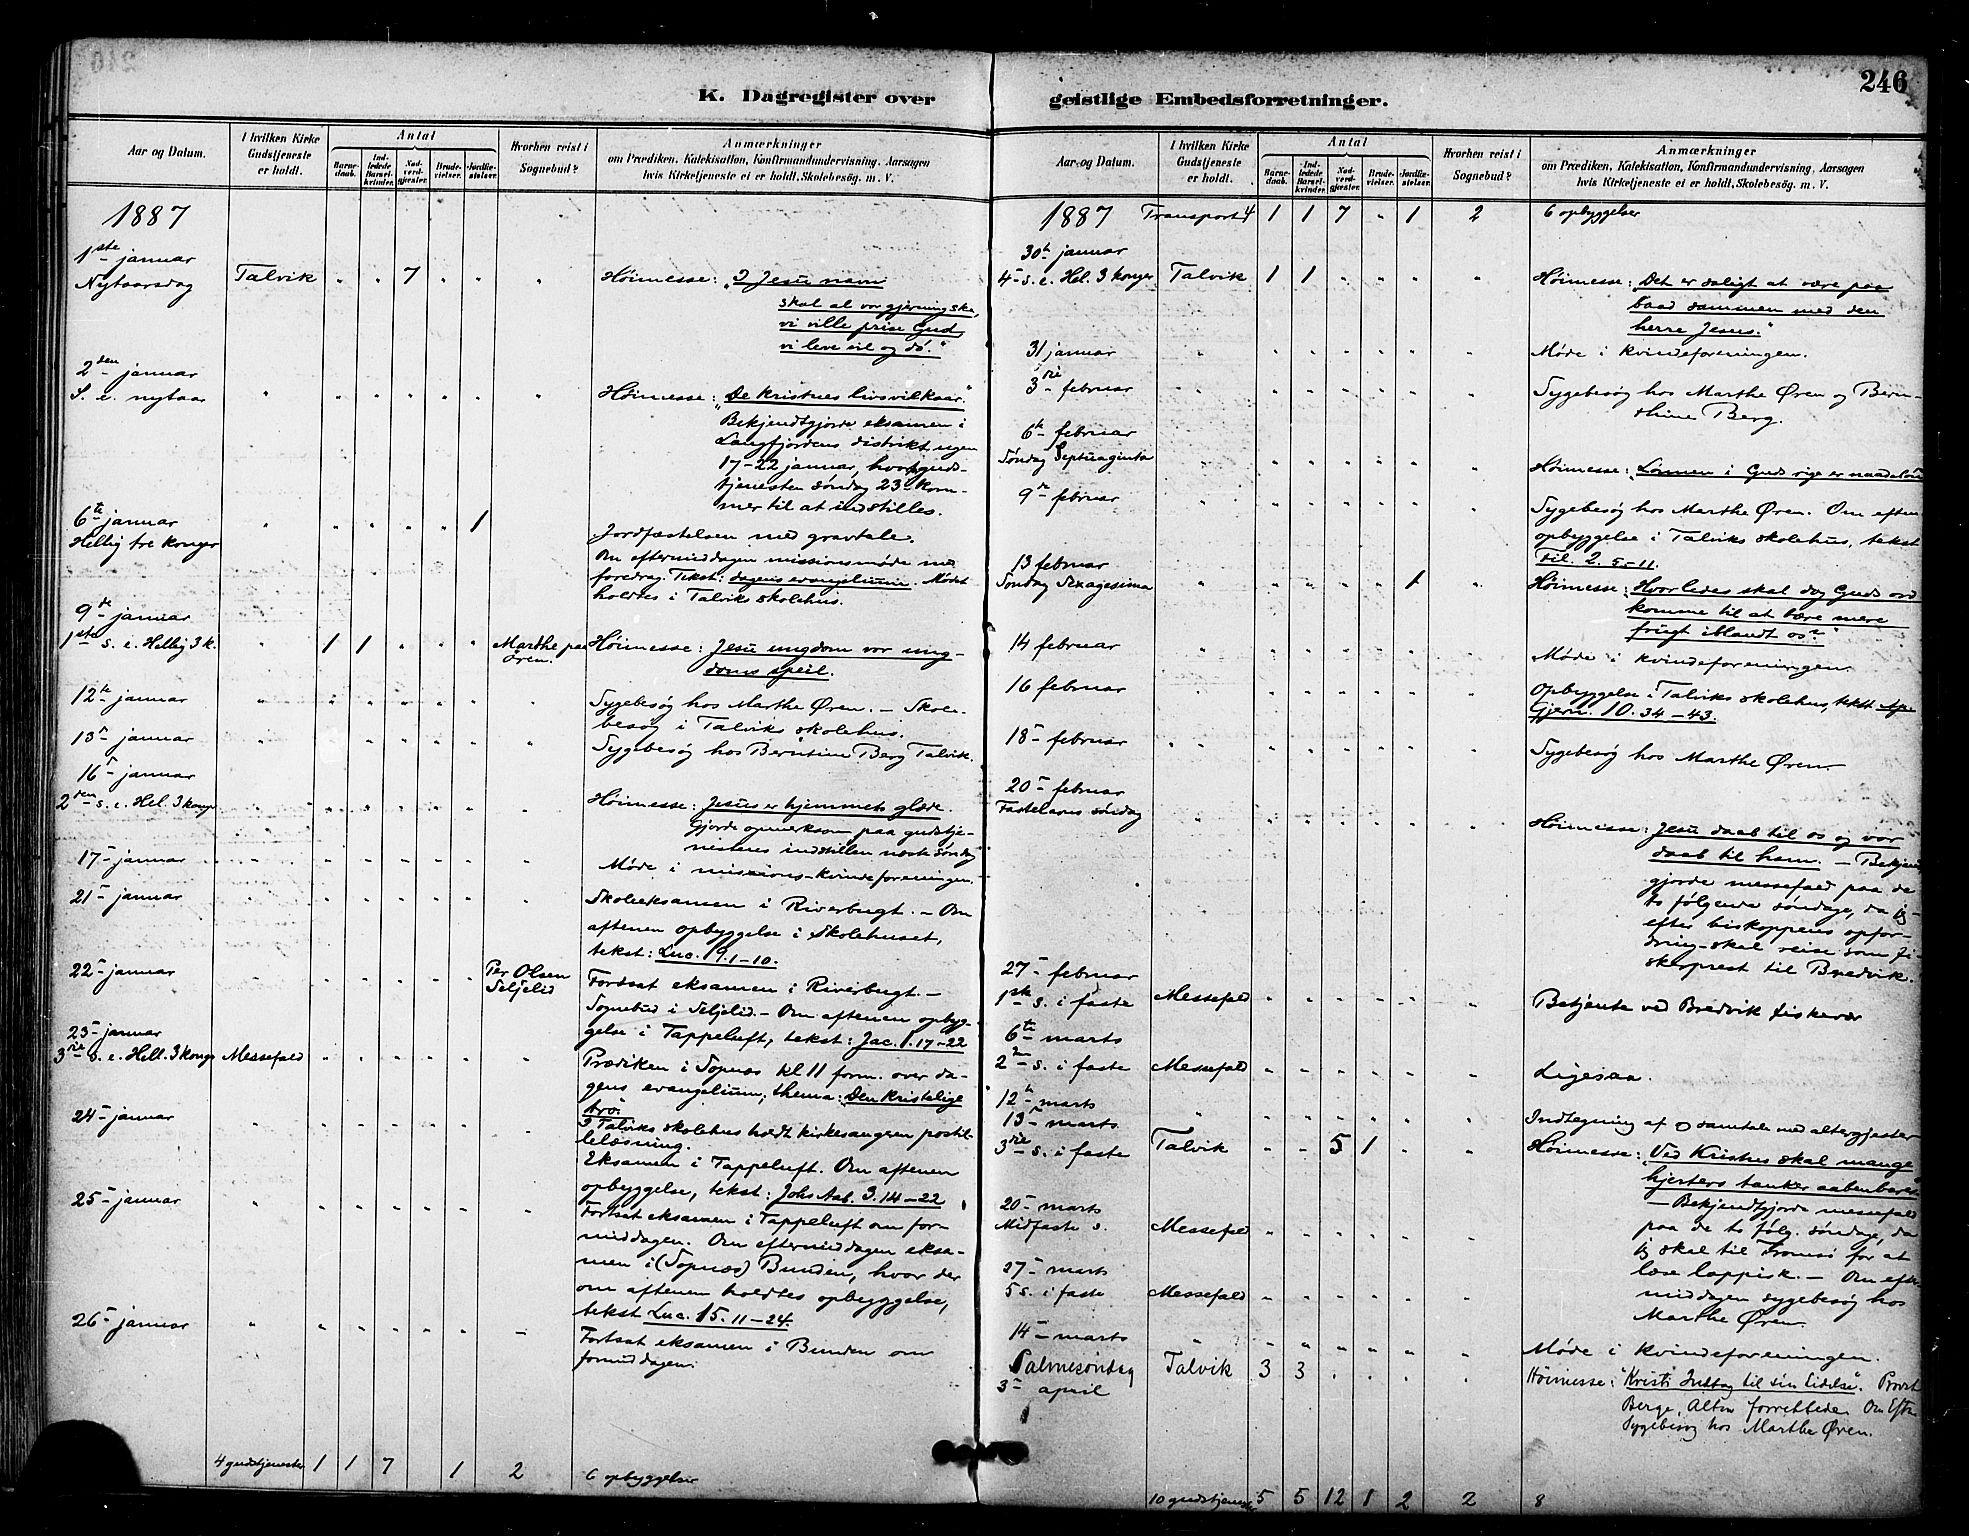 246
K. Dagregister over geistlige Embedsforretninger.
Aar og Datum.
I hvilken Kirke Gudstjeneste er holdt.
Antal
Barne-daab.
Ind-ledede Barsel-kvinder.
Nad-verd-gjester.
Brude-vielser.
Jordfæ-stelser.
Hvorhen reist i Sognebud?
Anmærkninger
om Prædiken, Katekisation, Konfirmandundervisning, Aarsagen
hvis Kirketjeneste ei er holdt, Skolebesøg. m. V.
1887
1ste januar
Nytaarsdag Talvik " " 7 " " " Høimesse: "I Jesu navn
skal al vor gjerning ske,
vi ville prise Gud,
vi leve vil og dø."
2den januar
S. e. nytaar " " " " " " " Høimesse: "De kristnes livsvilkaar."
Bekjendtgjorde eksamen i
Langfjordens distrikt, ugen
17-22 januar, hvorfor guds-
tjenesten søndag 23de kom-
mer til at indstilles.
6te januar " " " " " 1
Hellig tre konger Jordfæstelsen med gravtale.
Om eftermiddagen missionsmøde med
foredrag. Tekst: dagens evangelium. Mødet
holdtes i Talviks skolehus.
9de januar
1ste s. e. Hellig 3 k. " 1 1 " " " Marthe paa Øren. Høimesse: Jesu ungdom vor ung-
doms speil.
12te januar " " " " " " " Sygebesøg hos Marthe Øren. — Skole-
besøg i Talviks skolehus.
13 januar " " " " " " " Sygebesøg hos Berntine Berg Talvik.
16 januar
2den s. e. Hel. 3 konger " " " " " " Høimesse: Jesus er hjemmets glæde.
Gjorde opmerksom paa gudstje-
nestens indstillen næste søndag
17 januar " " " " " " " Møde i missions-kvindeforeningen.
21 januar " " " " " " " Skoleeksamen i Riverbugt. — Om
aftenen opbyggelse i skolehuset,
tekst: Luc. 19.1-10.
22 januar " " " " " " Per Olsen Seljelid Fortsat eksamen i Riverbugt. —
Sognebud i Seljelid. — Om aftenen opbyg-
gelse i Tappeluft, tekst: Jac. 1.17-22
23 januar
3die s. e. Hell. 3 konger Messefald " " " " " " Prædiken i Sopnæs kl 11 form. over da-
gens evangelium; thema: Den kristelige
tro.
I Talviks skolehus holdt kirkesangeren postil-
lelæsning.
24 januar " " " " " " Eksamen i Tappeluft. Om aftenen
opbyggelse, tekst: Johs Aab. 3.14-22
25 januar " " " " " " " Fortsat eksamen i Tappeluft om for-
middagen. Om eftermiddagen eksa-
men i (Sopnæs) Bunden, hvor der
om aftenen holdtes opbyggelse,
tekst Luc. 15.11-24.
26 januar " " " " " " " Fortsat eksamen i Bunden om
formiddagen.
4 gudstjenester 1 1 7 1 2 6 opbyggelser
Aar og Datum.
I hvilken Kirke Gudstjeneste er holdt.
Antal
Barne-daab.
Ind-ledede Barsel-kvinder.
Nad-verd-gjester.
Brude-vielser.
Jordfæ-stelser.
Hvorhen reist i Sognebud?
Anmærkninger
om Prædiken, Katekisation, Konfirmandundervisning, Aarsagen
hvis Kirketjeneste ei er holdt, Skolebesøg. m. V.
1887 Transport 4 1 1 7 " 1 2 6 opbyggelser
30te januar
4 s. e. Hel. 3 konger Talvik 1 1 " " " " Høimesse: "Det er saligt at være paa
baad sammen med den
herre Jesus."
31 januar " " " " " " Møde i kvindeforeningen.
3die februar " " " " " " " Sygebesøg hos Marthe Øren og Bern-
thine Berg.
6te februar
Søndag Septuagesima " " " " " " Høimesse: "Lønnen i Guds rige er naadeløn
9de februar " " " " " " " Sygebesøg hos Marthe Øren. Om aften
opbyggelse i Talviks skolehus, tekst
Fil. 2. 5-11.
13 februar
Søndag Sexagesima " " " " " 1 " Høimesse: "Hvorledes skal dog Guds ord
komme til at bære mere
frugt iblandt os?"
14 februar " " " " " " " Møde i kvindeforeningen.
16 februar " " " " " " " Opbyggelse i Talviks skolehus, tekst Ap.
Gjern. 10. 34-43.
18 februar " " " " " " " Sygebesøg hos Marthe Øren.
20 februar
Fastelavns søndag " " " " " " " Høimesse: Jesu daab til os og vor
daab til ham. — Bekjendt-
gjorde messefald paa de
to følgende søndage, da jeg
efter biskoppens opfor-
dring skal reise som fi-
skerprest til Bredvik.
27 februar
1ste s. i faste Messefald " " " " " " Betjente ved Bredvik fiskevær
6te marts
2den s. i faste Messefald " " " " " " Ligesaa.
12te marts " " " " Indtegning af og samtale med altergjester
13 marts
3die s. i faste Talvik " " 5 1 " " Høimesse: "Ved Kristus skal mange
hjerters tanker aabenbares"
— Bekjendtgjorde messefald
paa de to følg. søndage, da
jeg skal til Tromsø for at
læse lappisk. — Om efter-
middagen sygebesøg hos
Marthe Øren.
20 marts
Midfaste s. Messefald " " " " " "
27 marts
5 s. i faste Messefald " " " " " "
14 marts " " " " " " " Møde i kvindeforeningen.
Palmesøndag Talvik 3 3 . . . .
3 april Høimesse: "Kristi Indtog til sin Lidelse". Provst
Berge, Alten forrettede. Om Eftm
Sygebesøg hos Marthe Øren.
10 gudstjenester 5 5 12 1 2 2 8